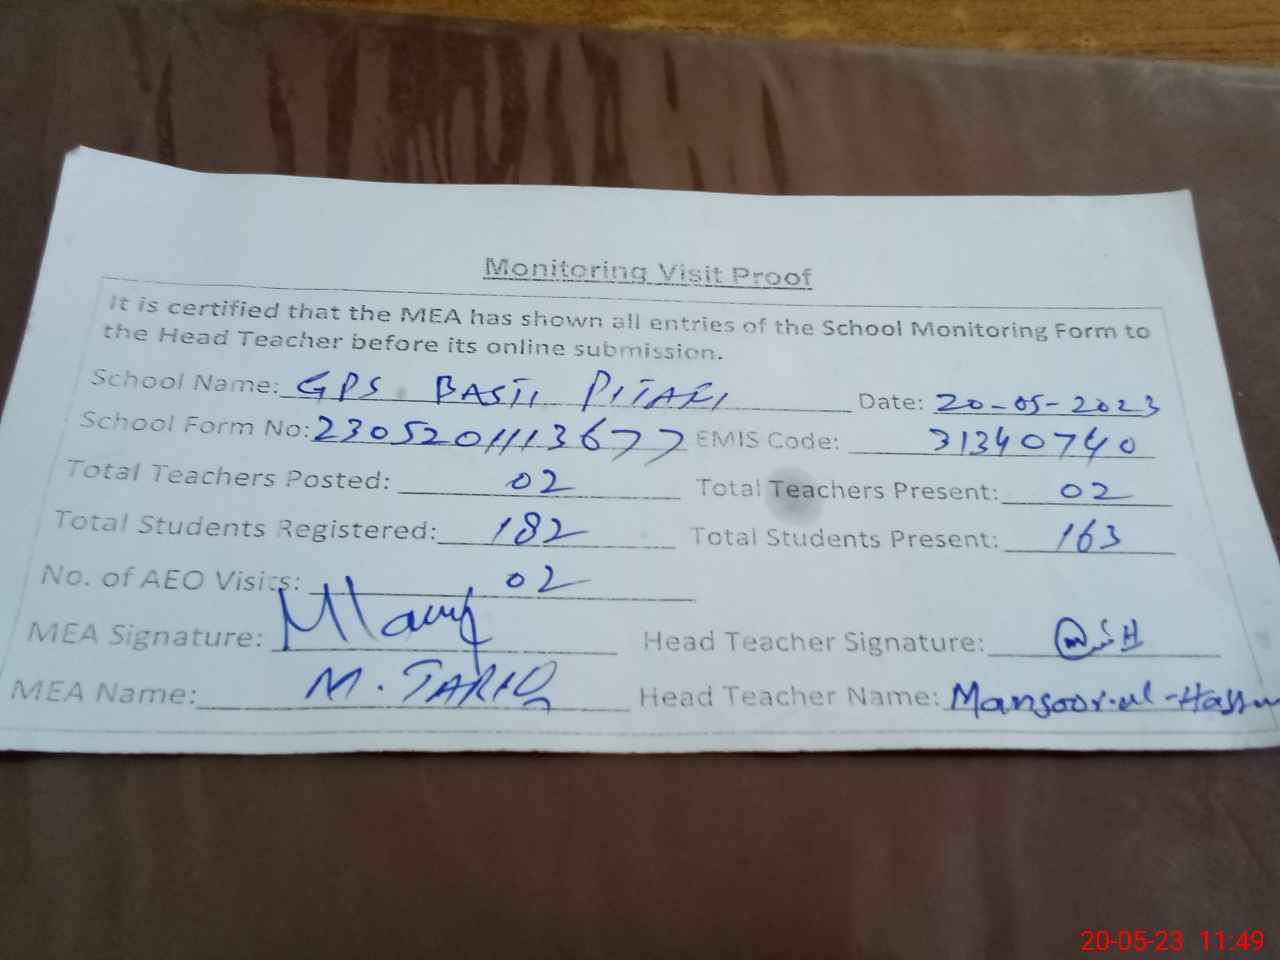 Monitoring Visit Proof
It is certified that the MEA has shown all entries of the School Monitoring Form to
the Head Teacher before its online submission.
School Name: GPS BASTI PITAFI Date: 20-05-2023
School Form No: 2305201113677 EMIS Code: 31340740
Total Teachers Posted: 02 Total Teachers Present: 02
Total Students Registered: 182 Total Students Present: 163
No. of AEO Visits: 02
MEA Signature: Head Teacher Signature:
MEA Name: M. TARIQ Head Teacher Name: Mansoor-ul-Hassan
20-05-23 11:49